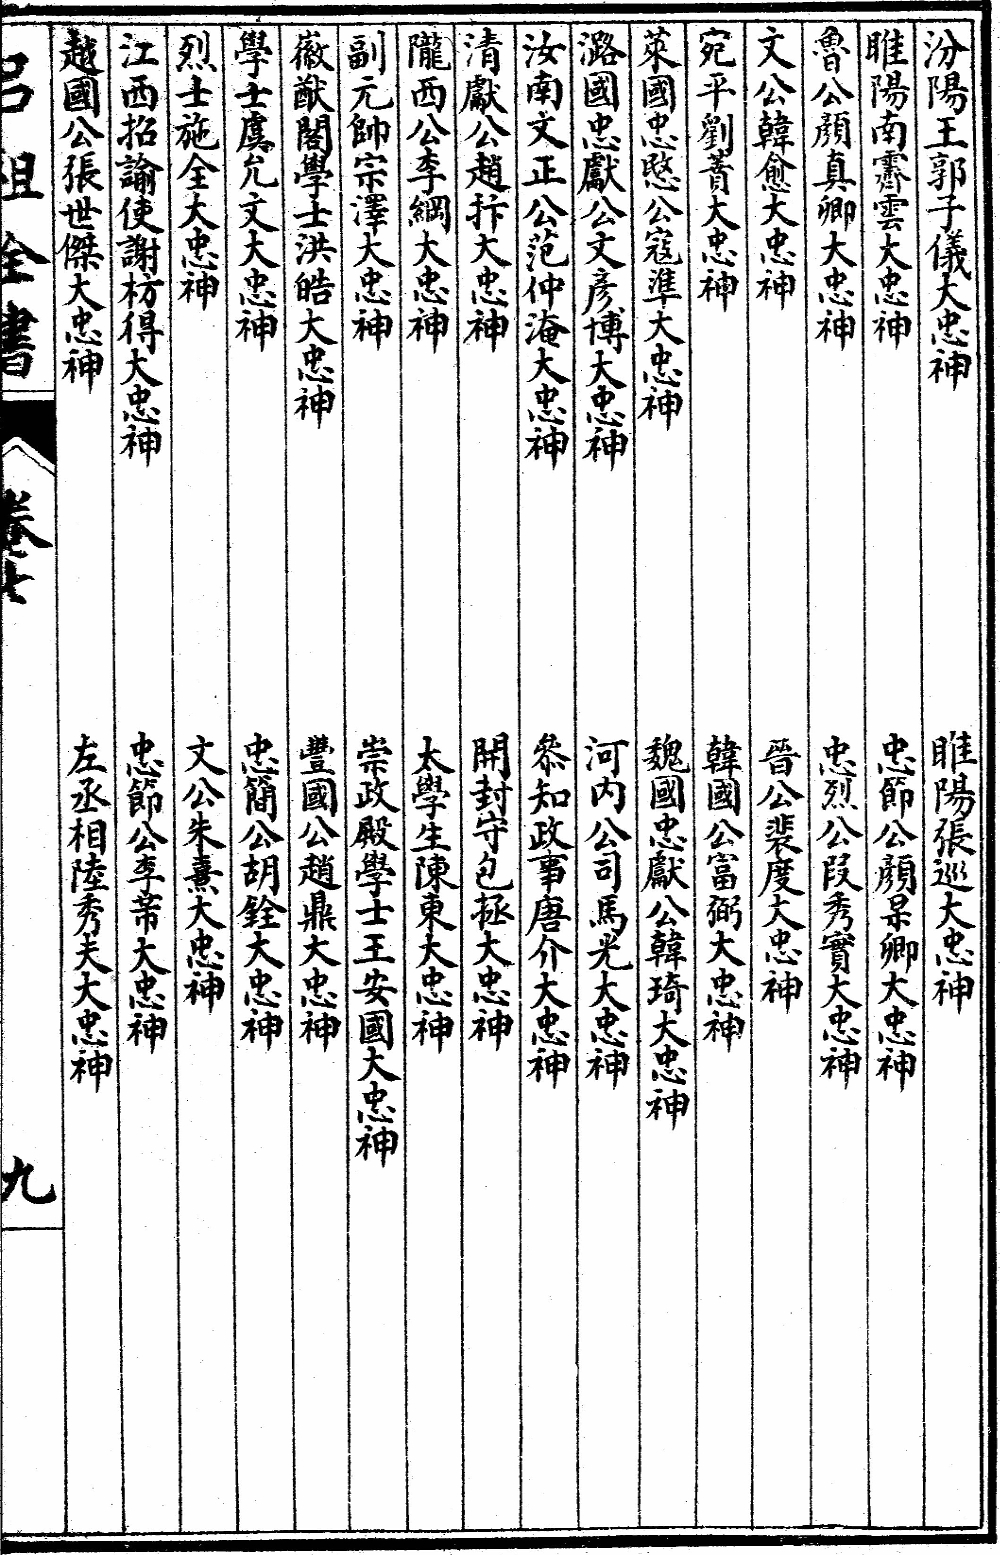 汾陽王郭子儀大忠神　睢陽張巡大忠神
睢陽南霽雲大忠神　忠節公顏杲卿大忠神
魯公顏真卿大忠神　忠烈公段秀實大忠神
文公韓愈大忠神　晉公裴度大忠神
宛平劉蕡大忠神　韓國公富弼大忠神
萊國忠愍公寇準大忠神　魏國忠獻公韓琦大忠神
潞國忠獻公文彥博大忠神　河內公司馬光大忠神
汝南文正公范仲淹大忠神　叅知政事唐介大忠神
清獻公趙抃大忠神　開封守包拯大忠神
隴西公李綱大忠神　太學生陳東大忠神
副元帥宗澤大忠神　崇政殿學士王安國大忠神
徽猷閣學士洪皓大忠神　豐國公趙鼎大忠神
學士虞允文大忠神　忠簡公胡銓大忠神
烈士施全大忠神　文公朱熹大忠神
江西招諭使謝枋得大忠神　忠節公李芾大忠神
越國公張世傑大忠神　左丞相陸秀夫大忠神
呂祖全書　卷七　九